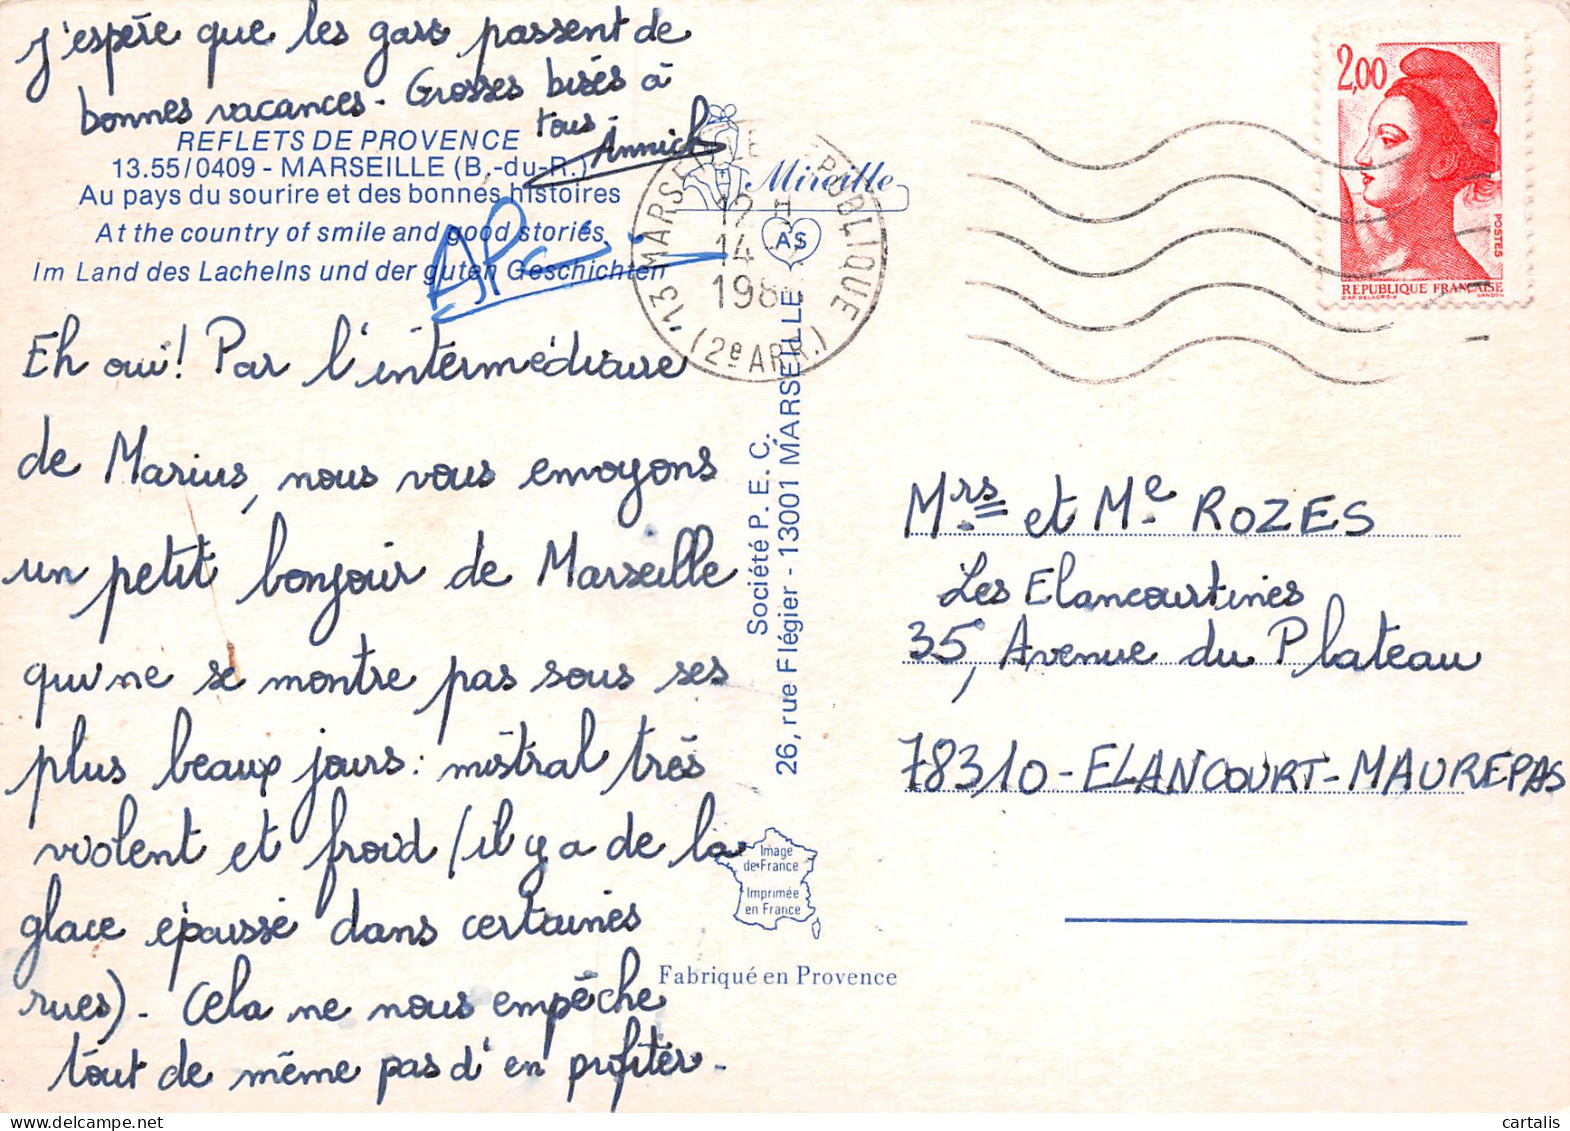 j'espère que les gars passent de
bonnes vacances - Grosses bises à
tous -
Annick
REFLETS DE PROVENCE
13.55/0409 - MARSEILLE (B.-du-R.)
Au pays du sourire et des bonnes histoires
At the country of smile and good stories
Im Land des Lachelns und der guten Geschichten
Eh oui! Par l'intermédiaire
de Marius, nous vous envoyons
un petit bonjour de Marseille
qui ne se montre pas sous ses
plus beaux jours : mistral très
violent et froid (il y a de la
glace épaisse dans certaines
rues) - Cela ne nous empêche
tout de même pas d'en profiter -
Mireille
AS
Société P. E. C.
26, rue Flégier - 13001 MARSEILLE
Image
de France
Imprimée
en France
Fabriqué en Provence
13 MARSEILLE RÉPUBLIQUE
(2e ARR.)
2,00
POSTES
REPUBLIQUE FRANÇAISE
D'AP. DELACROIX GANDON
Mrs et Me ROZES
Les Elancourtines
35, Avenue du Plateau
78310 - ELANCOURT-MAUREPAS
cartalis